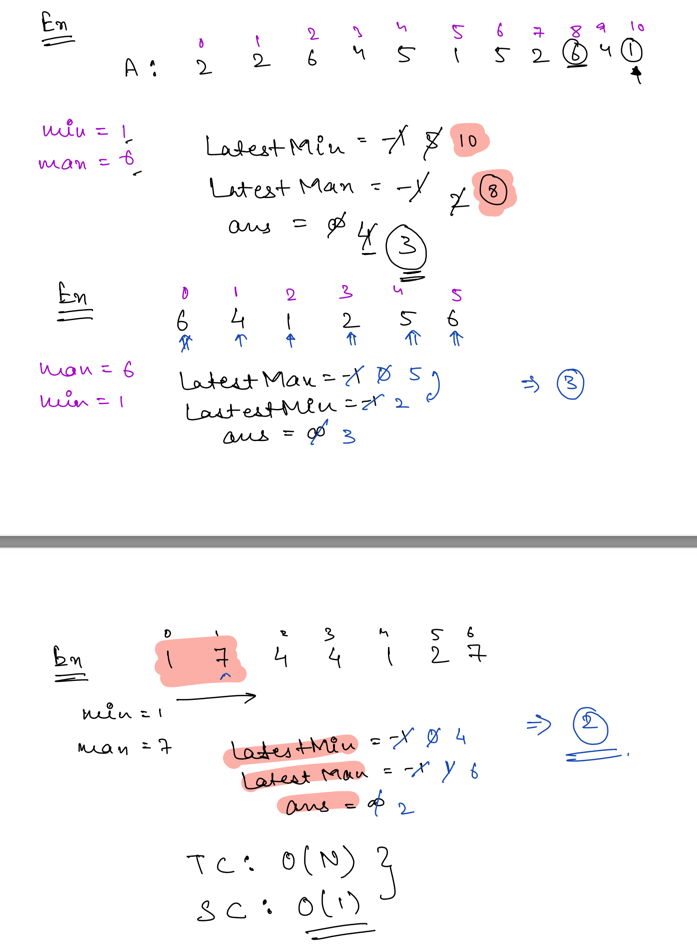 Ex
0 1 2 3 4 5 6 7 8 9 10
A : 2 2 6 4 5 1 5 2 6 4 1
min = 1
max = 6
Latest Min = -1 5 10
Latest Max = -1 2 8
ans = ∞ 4 3
Ex
0 1 2 3 4 5
6 4 1 2 5 6
max = 6
min = 1
Latest Max = -1 0 5
LastestMin = -1 2
ans = ∞ 3
⇒ 3
0 1 2 3 4 5 6
Ex 1 7 4 4 1 2 7
min = 1
max = 7
LatestMin = -1 0 4
Latest Max = -1 1 6
ans = ∞ 2
⇒ 2
TC : O(N) }
SC : O(1)